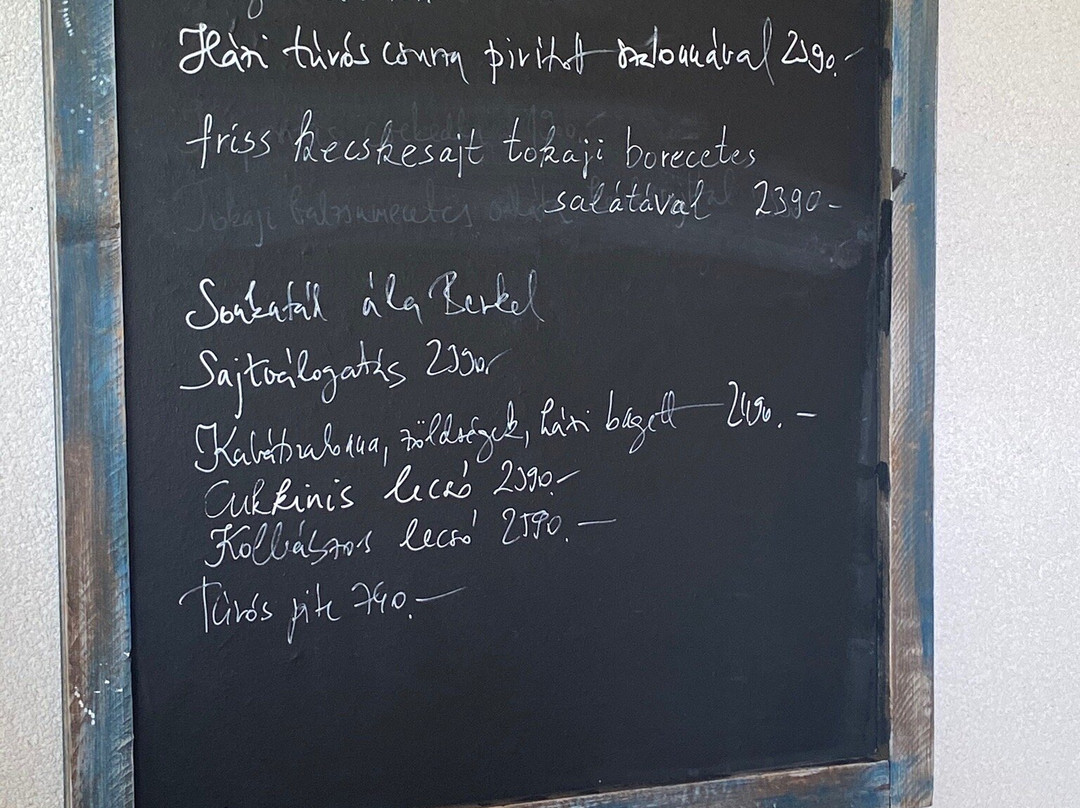 Házi túrós csusza pirított szalonnával 2390.-
friss kecskesajt tokaji borecetes
salátával 2390-
Sonkatál ála Berkel
Sajtválogatás 2390.-
zöldségek, házi bagett 2490.-
Cukkinis lecsó 2390.-
Kolbászos lecsó 2590.-
Túrós pite 790.-